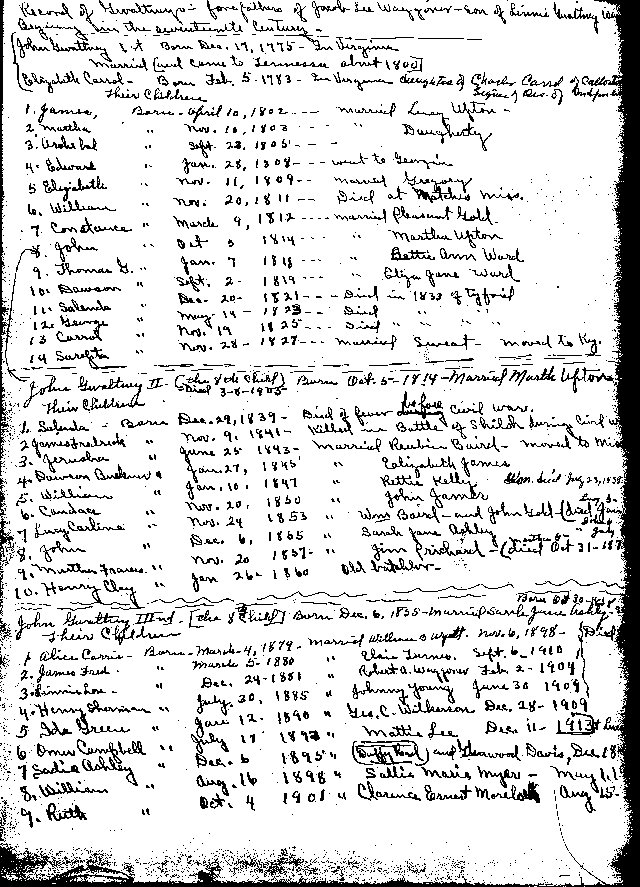 Record of Gwaltneys - forefathers of Jacob Lee Waggoner - Son of Linnie Gwaltney Wag
Beginning in the seventeenth Century -
John Gwaltney 1st Born Dec. 17, 1775 - In Virginia
Married [and came to Tennessee about 1800]
Elizabeth Carrol - Born Feb. 5 - 1783 - In Virginia daughter of Charles Carrol of
Signer of Dec. of
Their Children
1. James, Born - April 10, 1802 - - - - married Lucy Upton -
2. Martha " Nov. 10, 1803 - - - - " Daugherty
3. " Sept. 23, 1805 - - -
4. Edward " Jan. 28, 1808 - - - went to Georgia
5 Elizabeth " Nov. 11, 1809 - - - married Gregory
6. William " Nov. 20, 1811 - - - Died at Miss.
7. Constance " March 9, 1812 - - - married Pleasant Gold.
8. John " Oct 5 1814 - - - " Martha Upton
9. Thomas G. " Jan. 7 1818 - - - " Bettie Ann Ward
10. Dawson " Sept. 2 - 1819 - - - " Eliza Jane Ward
11. " Dec. 20 - 1821 - - - Died in 1833 of Tyfoid
12. George " May 14 - 1823 - - - Died " " "
13 Carrol " Nov. 19 1825 - - - Died " " "
14 " Nov. 28 - 1827 - - - married Sweat - moved to Ky.
John Gwaltney II - (the 8th Child) Born Oct. 5 - 1814 - Married Marth Upton
Died 3-8-1905
Their Children
1. - Born - Dec. 29, 1839 - Died of fever before civil war.
2 James Fredrick " Nov. 9, 1841 - Killed in a Battle of Shiloh during Civil W
3. Jerusha " June 25 1843 - Married Reubin Baird - moved to Mis
4. Dawson " Jan. 27, 1845 " Elizabeth James
5. William " Jan. 10, 1847 " Kelly July 23, 1838
6. Candace " Nov. 20, 1850 " John James
7 Lucy " Nov. 24 1853 " Wm Baird - and John Gold - (died
8. John " Dec. 6, 1855 " Sarah Jane Ashley
9. Martha Frances " Nov. 20 1857 - " Jim Prichard - (died Oct 31 - 187
10. Henry Clay " Jan 26 - 1860 Old batchlor -
Born Oct 30 -
John Gwaltney IIIrd. - [the 8th Child] Born Dec. 6, 1835 - Married Sarah Jane Ashley -
Their Children
1 Alice Carrie - Born - March - 4, 1879 - Married William Wyatt. Nov. 6, 1898 - Died
2. James Fred. " March 5 - 1880 " Elsie Turner. Sept. 6 - 1910
3. Linnie Lou - " Dec. 24 - 1881 " Robert A. Waggoner Feb. 2 - 1904
4. Henry Sherman " July. 30, 1885 " Johnny Young June 30 1909
5 Ida Greene " Jan. 12 - 1890 " Geo. C. Wilkerson Dec. 28 - 1909
6 Omer Campbell " July 17 " Mattie Lee Dec. 11 - 1913
7 Sadie Ashley " Dec. 6 1895 " and Glenwood Davis, Dec. 18
8. William " Aug. 16 1898 " Sallie Marie Myers - May 1. 1
9. Ruth " Oct. 4 1901 " Clarence Ernest Aug 15 -